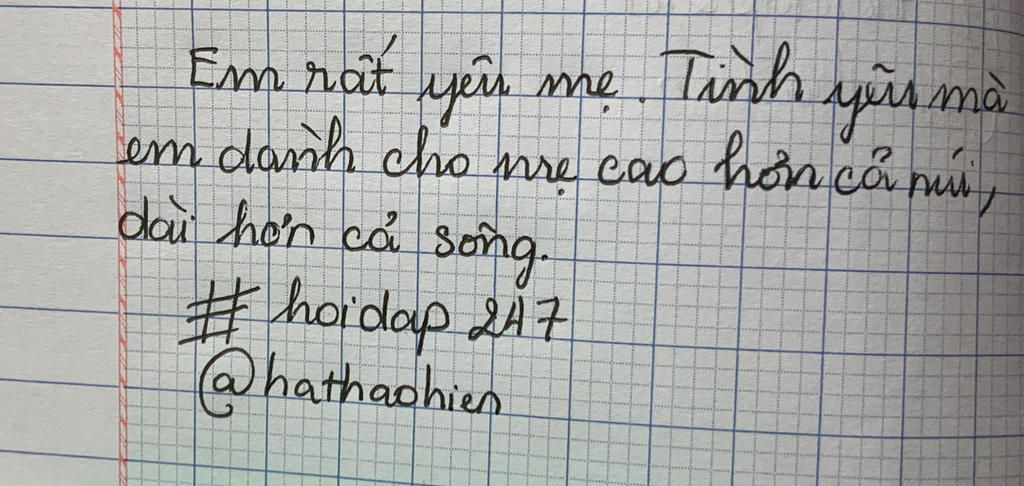 Em rất yêu mẹ. Tình yêu mà
em dành cho mẹ cao hơn cả núi,
dài hơn cả sông.
# hoidap 247
@hathaohien